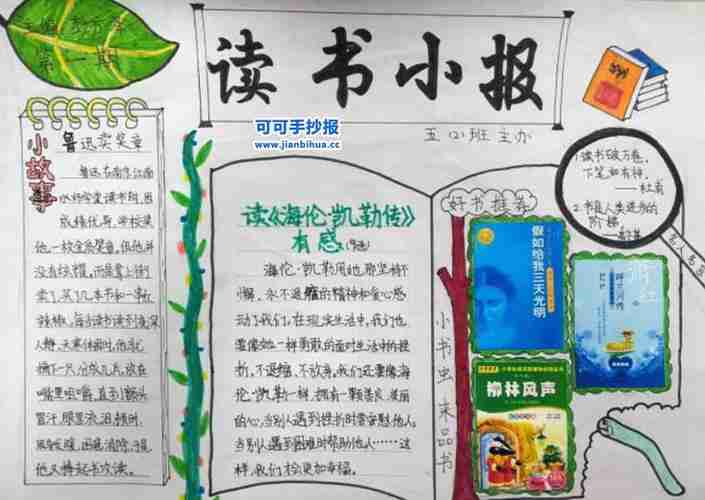 第一期
读书小报
可可手抄报
www.jianbihua.cc
五(2)班主办
小故事
鲁迅卖奖章
鲁迅在南京江南
水师学堂读书期,因
成绩优异,学校奖
他一枚金奖章,但他并
没有炫耀,而是拿上街
卖了,买了几本书和一串红
辣椒,每当读书读到夜深
人静,天寒休顿时,他就
摘下一只,分成几片,放在
嘴里咀嚼,直到额头
冒汗,眼里流泪,顿时,
周身发暖,困意消除,于是
他又捧起书攻读。
读《海伦·凯勒传》
有感
海伦·凯勒用她那坚持不
懈、永不退缩的精神和爱心感
动了我们,在现实生活中,我们也
要像她一样勇敢的面对生活中的挫
折,不退缩,不放弃,我们还要像海
伦·凯勒一样,拥有一颗善良、美丽
的心,当别人遇到挫折时要安慰他人,
当别人遇到困难时帮助他人……这
样,我们会更加幸福。
好书推荐
假如给我三天光明
柳林风声
小书虫来品书
1.读书破万卷,
下笔如有神。
——杜甫
2.书是人类进步的
阶梯
名人名言